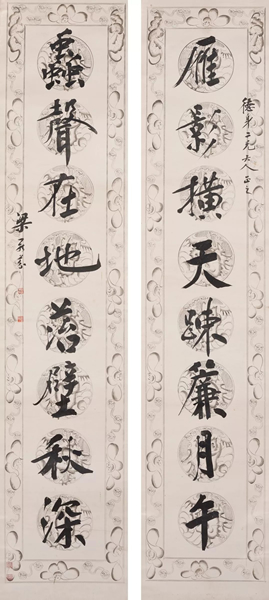 德弟二兄大人正之
雁影橫天疎簾月午
蟲聲在地落壁秋深
梁